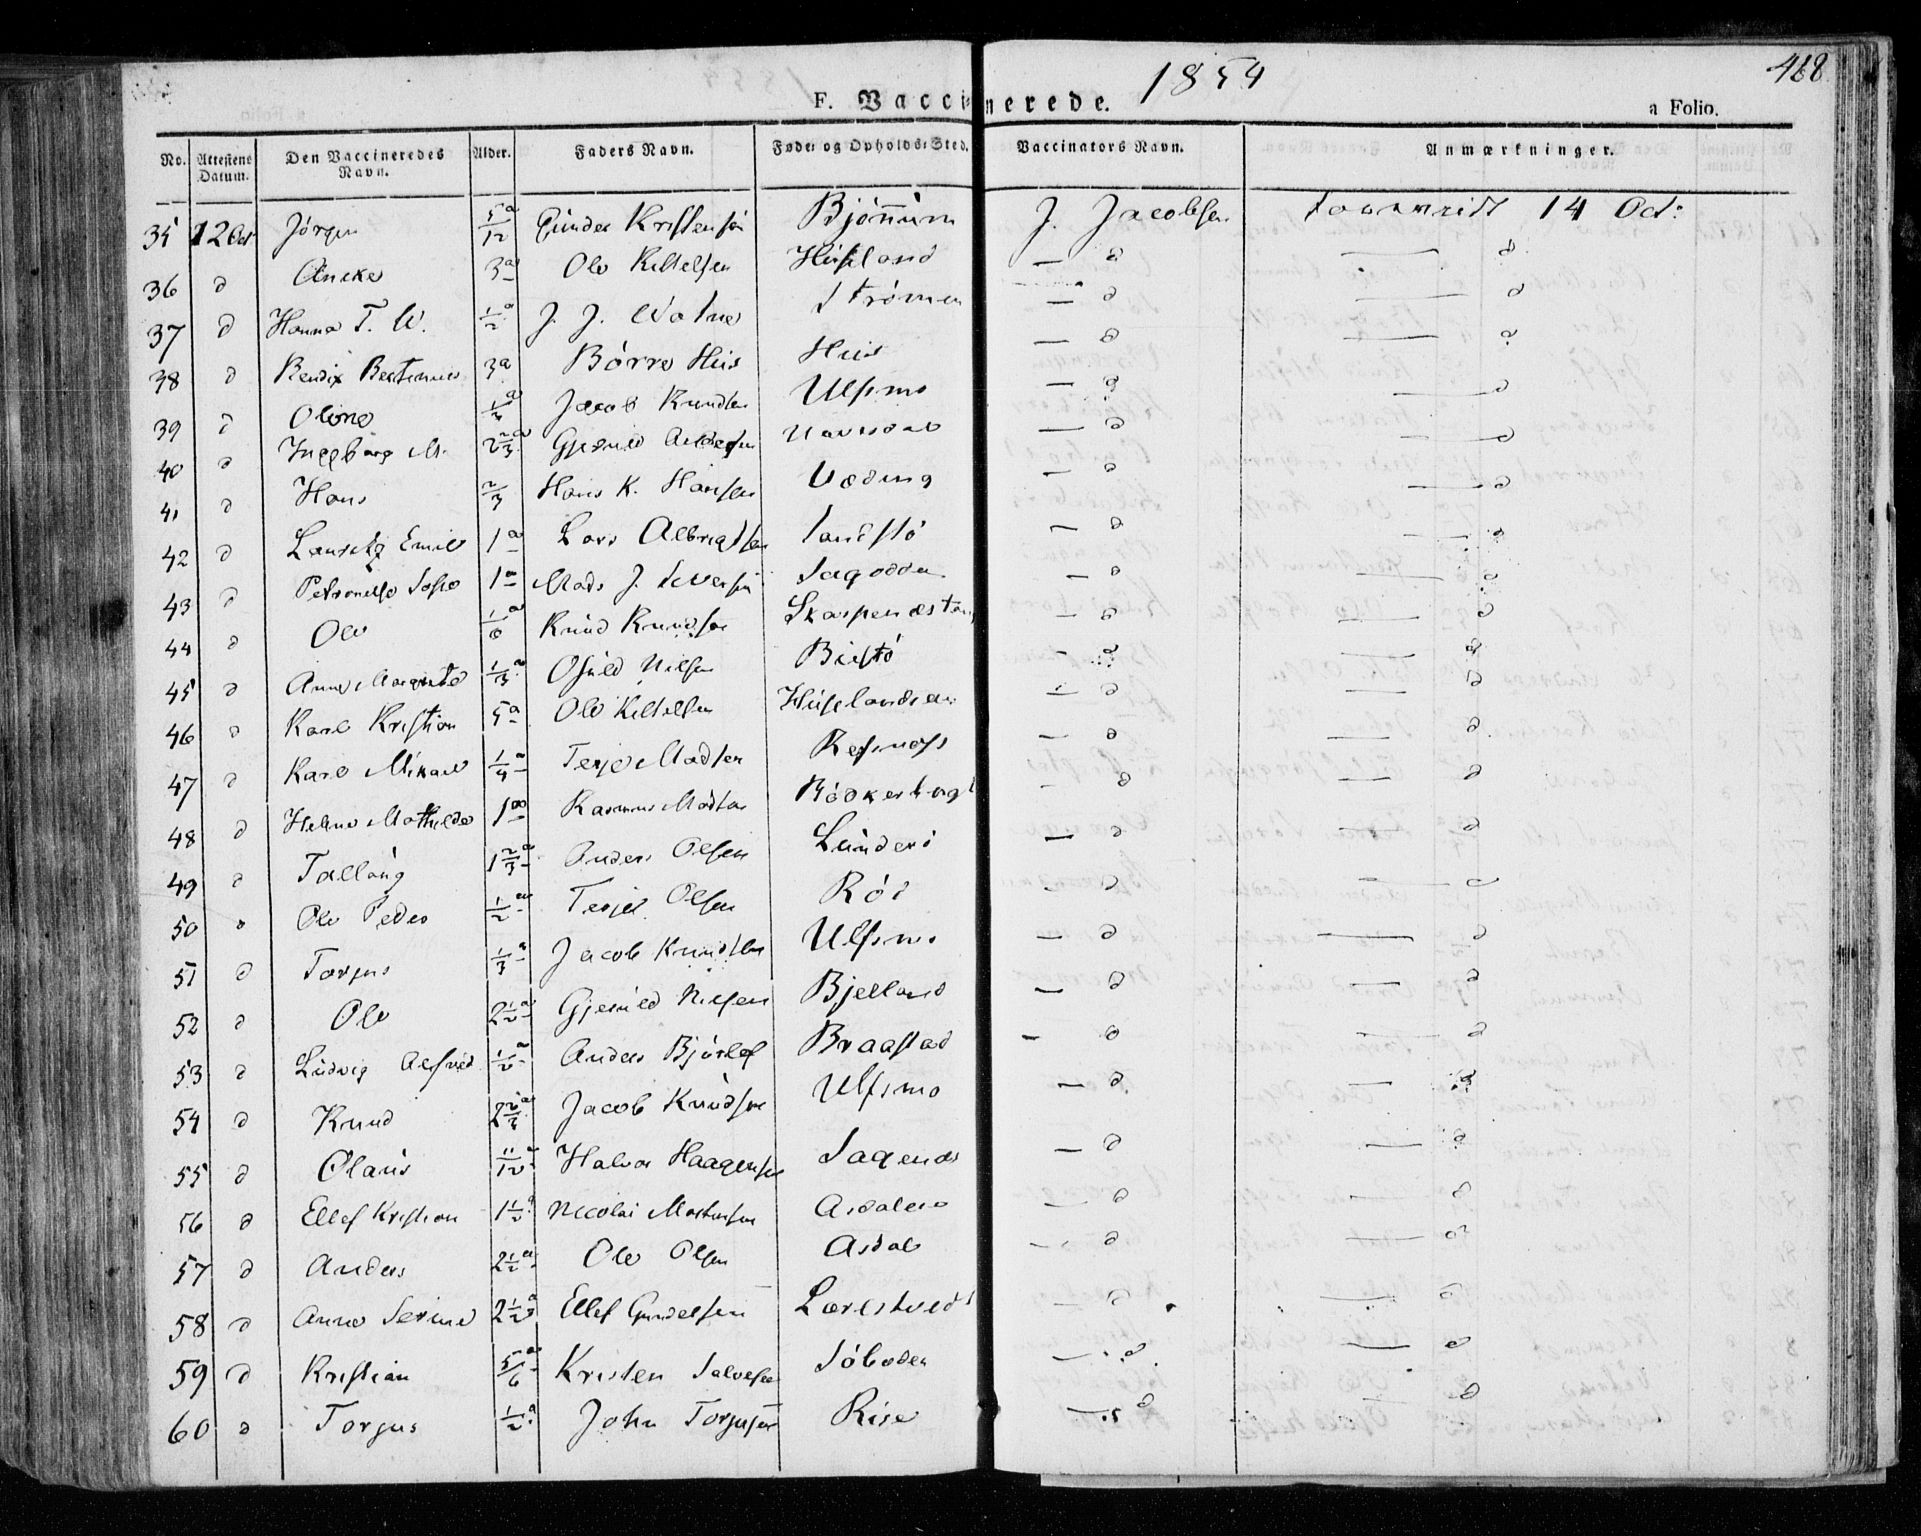 1854
468
F. Vaccinerede.
a Folio.
No. Attestens Datum. Den Vaccineredes Navn. Alder. Faders Navn. Føde- og Opholds-Sted. Vaccinators Navn. Anmærkninger.
35 12 Oct Jörgen 5/12 a Gunder Kristensen Bjönnum J. Jacobsen 14 Oct:
36 d 3 a Ole Kittelsen Huseland — d — d
37 d Hanna T. W. 1/2 a J. J. Watne Strömen — d — d
38 d Bendix Bertinius 3 a Börre Huus Huus — d — d
39 d Oline a Jacob Knudsen Ulsmo — d — d
40 d Ingeborg M. 2 2/3 a Gjeruld — d — d
41 d Hans 2/3 Hans K. Hansen Ueding — d — d
42 d Lauritz Emil 1 a Lars Albrigtsen Sandstö — d — d
43 d Petronelle Sofie 1 a Mads J. Sagodden — d — d
44 d Ole 1/6 a Knud Knudsen Skarpenæstang — d — d
45 d Anne Margrete 1/3 a Osuld Nilsen Bustö — d — d
46 d Karl Kristian 5 a Ole Kittelsen — d — d
47 d Karl Mikael 1/4 a Terje Madsen Refsnæss — d — d
48 d Helene Mathilde 1 a Rasmus Madsen — d — d
49 d Tallang 1 2/3 a Anders Olsen Lunderö — d — d
50 d Ole Peder 1/2 a Terjel Olsen Röd — d — d
51 d Torjus 1/3 a Jacob Knudsen Ulsmo — d — d
52 d Ole 2 1/2 a Gjeruld Nilsen Bjelland — d — d
53 d Ludvig Alfred 1/2 a Anders Bjorlef Braastad — d — d
54 d Knud 2 a Jacob Knudsen Ulsmo — d — d
55 d Olaus 11/12 a Halvor Haagensen Sagene — d — d
56 d Ellef Kristian 1 1/2 a Nicolai Mortensen Asdalen — d — d
57 d Anders 2 1/2 a Ole Olsen Asdal — d — d
58 d Anne Serine 2 1/2 a Ellef Gundersen Lærestvedt — d — d
59 d Kristian 5/6 a Kristen Salvesen Söboden — d — d
60 d Torjus 1/2 a John Torjusen Rise — d — d